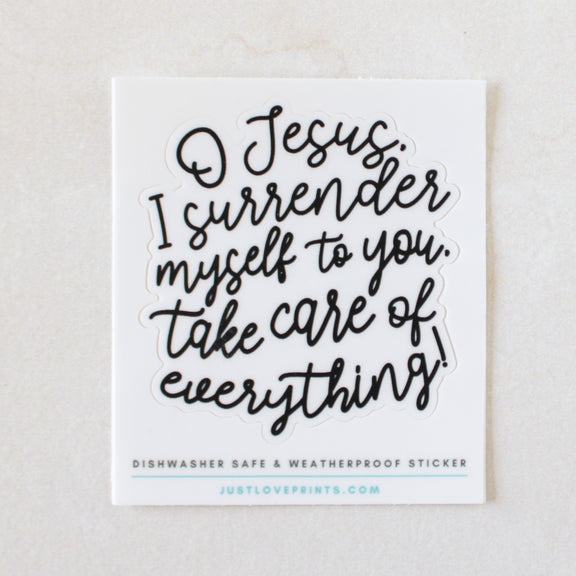 O Jesus,
I surrender
myself to you.
take care of
everything!
DISHWASHER SAFE & WEATHERPROOF STICKER
JUSTLOVEPRINTS.COM